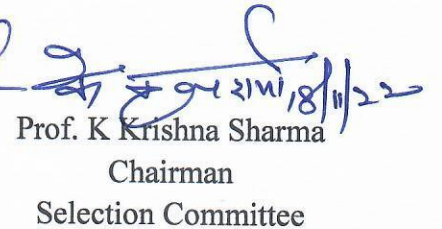 के 18/11/22
Prof. K Krishna Sharma
Chairman
Selection Committee